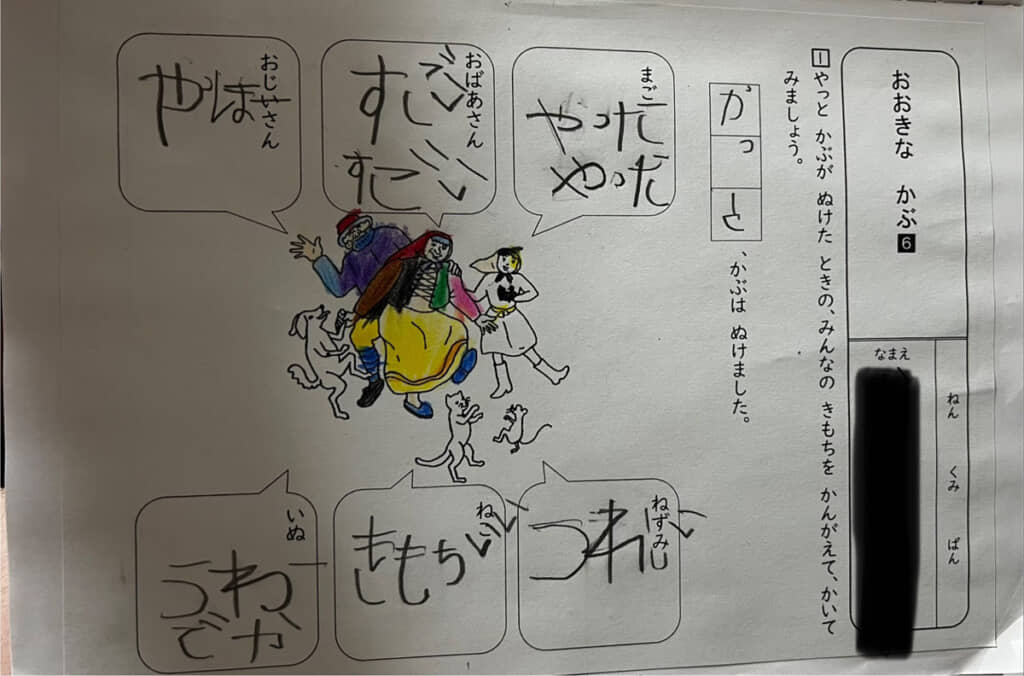 おおきな かぶ 6
ねん くみ ばん
なまえ
1 やっと かぶが ぬけた ときの、みんなの きもちを かんがえて、かいて
みましょう。
かっと、かぶは ぬけました。
まご
やった
やった
おばあさん
すごい
すごい
おじいさん
やばー
ねずみ
うれしい
ねこ
きもちい
いぬ
うわー
でか